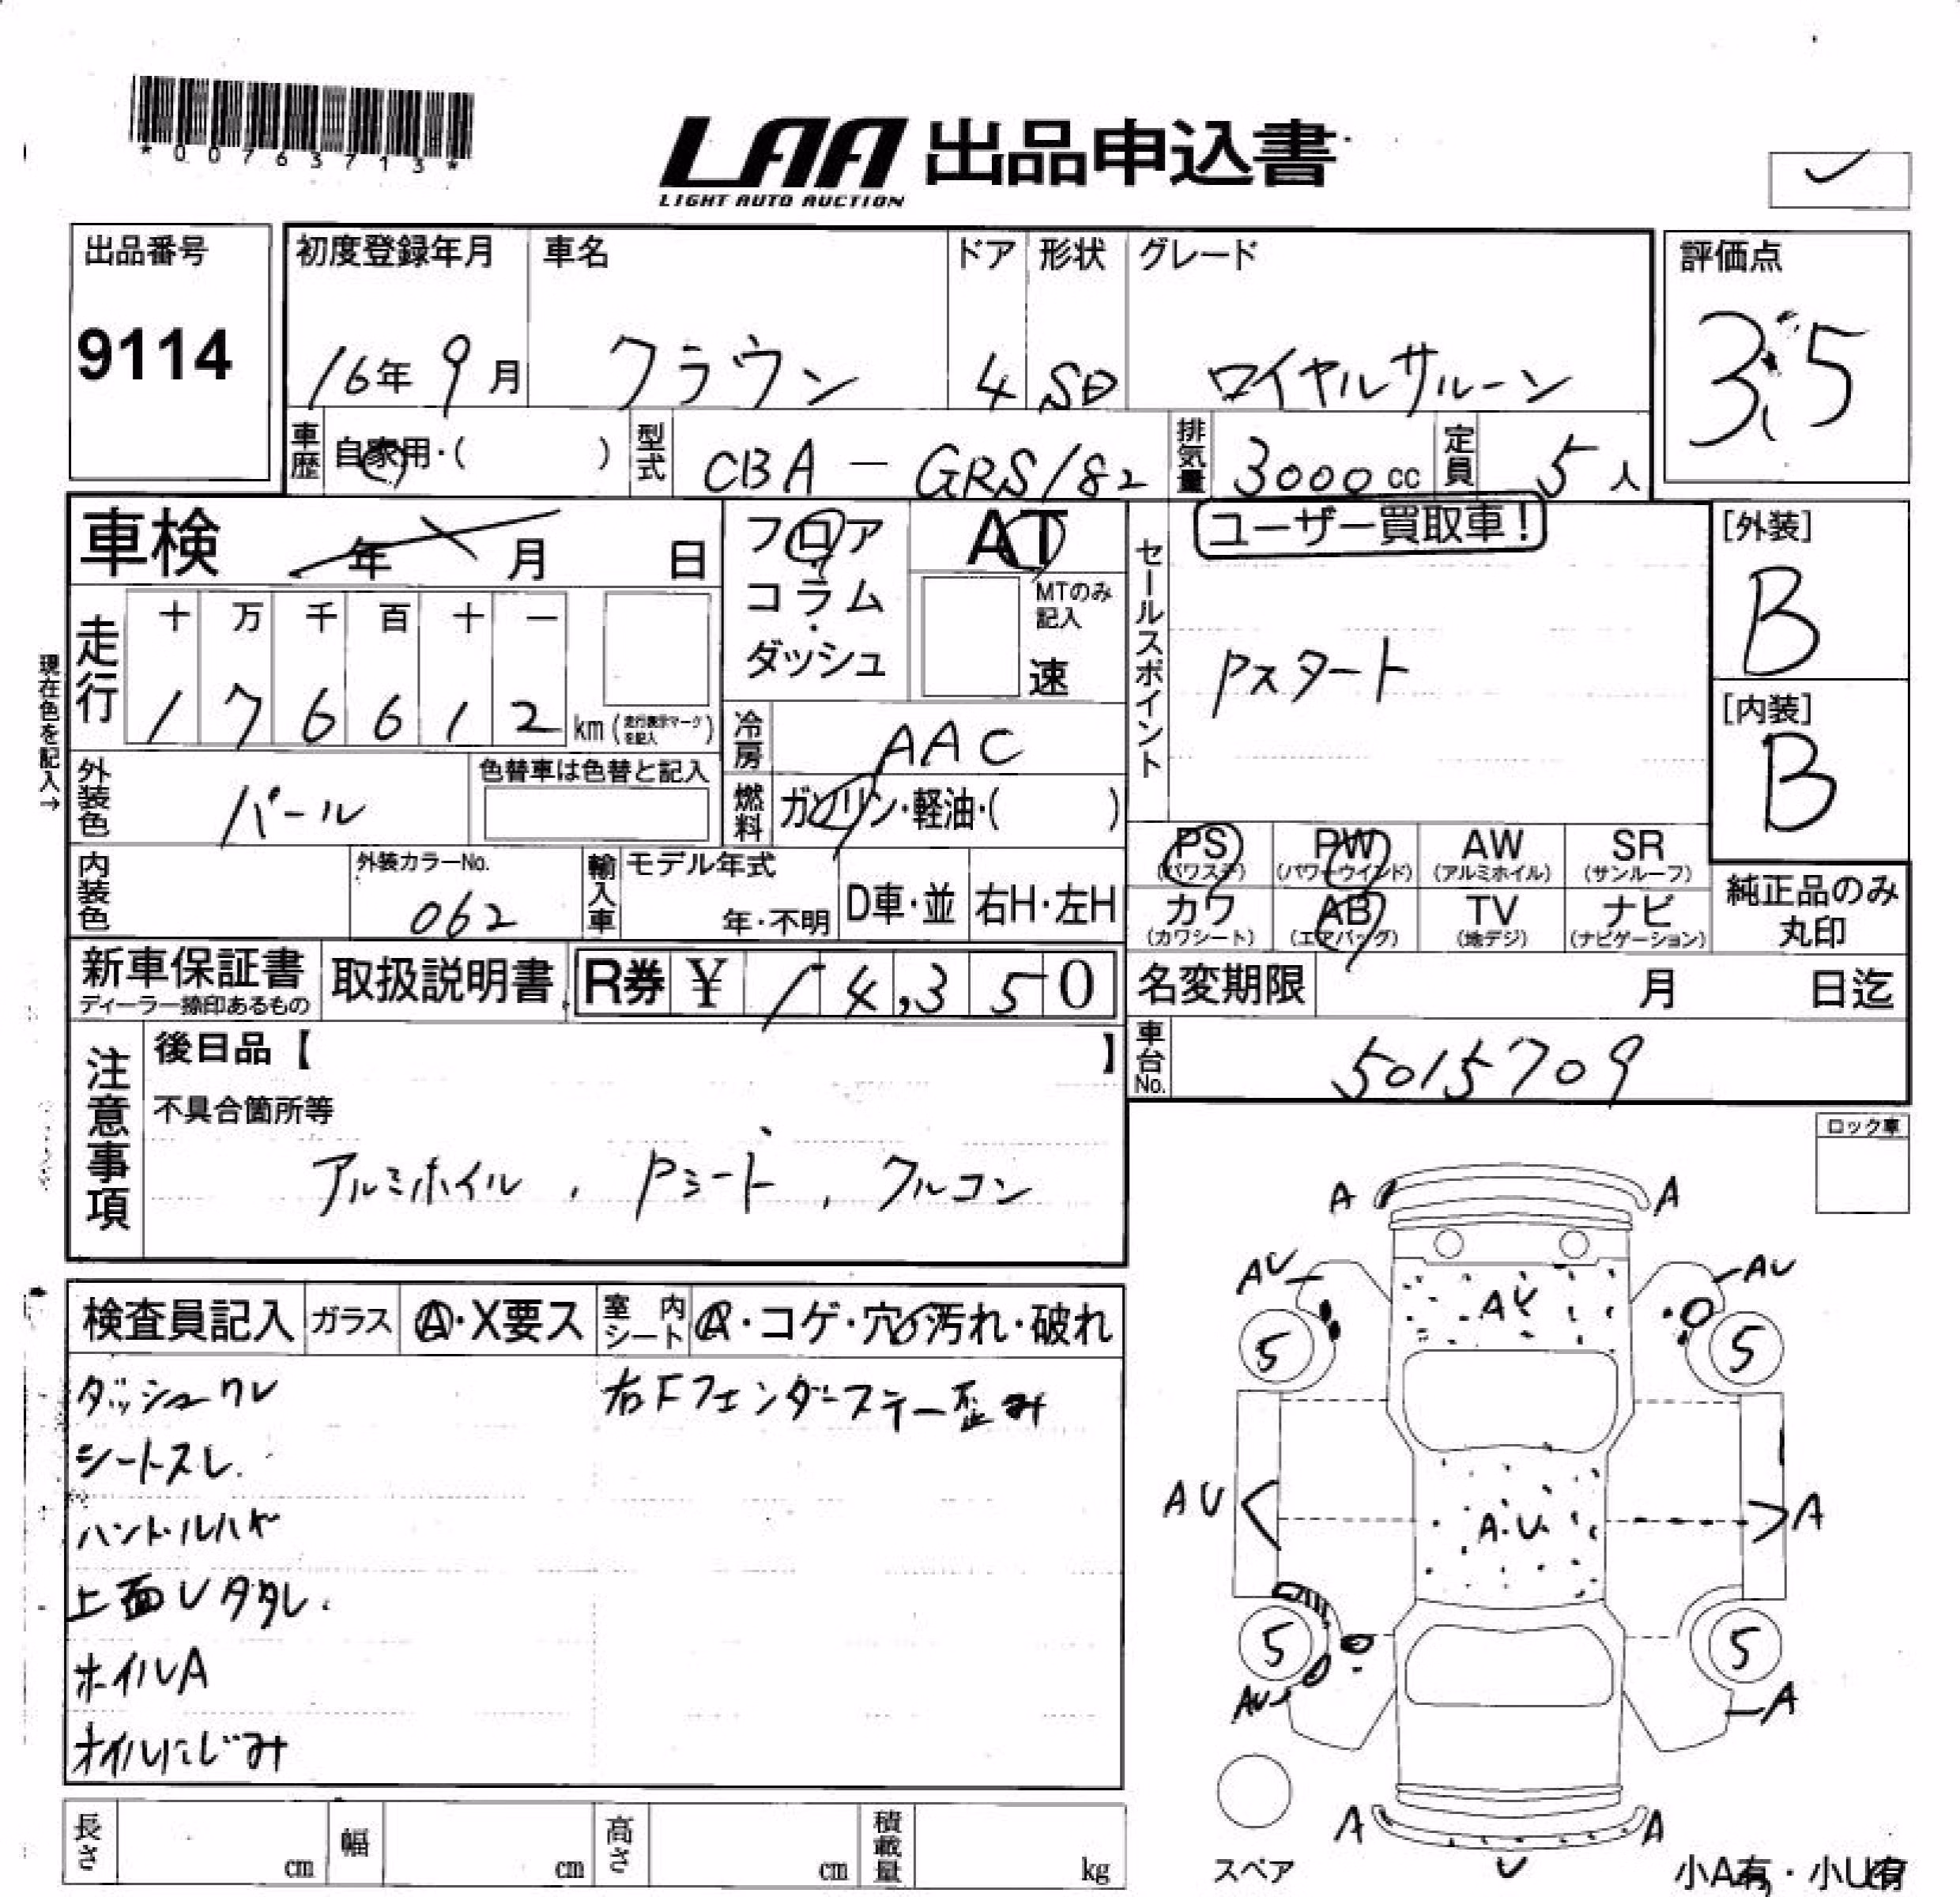 *00763713*
LAA 出品申込書
LIGHT AUTO AUCTION
出品番号
9114
初度登録年月 車名 ドア 形状 グレード
16年 9月 クラウン 4 SD ロイヤルサルーン
評価点
3.5
車歴 自家用・( ) 型式 CBA-GRS182 排気量 3000cc 定員 5人
車検 年 月 日
フロア・コラム・ダッシュ
AT
MTのみ記入
速
セールスポイント
ユーザー買取車!
Pスタート
[外装]
B
[内装]
B
現在色を記入→
走行 十 万 千 百 十 一
1 7 6 6 1 2 km (走行表示マークを記入)
冷房 AAC
外装色 パール
色替車は色替と記入
燃料 ガソリン・軽油・( )
内装色
外装カラーNo.
062
輸入車 モデル年式
年・不明 D車・並 右H・左H
PS (パワステ) PW (パワーウインド) AW (アルミホイル) SR (サンルーフ)
カワ (カワシート) AB (エアバッグ) TV (地デジ) ナビ (ナビゲーション)
純正品のみ丸印
新車保証書
ディーラー捺印あるもの
取扱説明書
R券 ¥ 14,350
名変期限 月 日迄
車台No. 5015709
注意事項
後日品【 】
不具合箇所等
アルミホイル , Pシート , クルコン
ロック車
検査員記入 ガラス A・X要ス 室内シート A・コゲ・穴・汚れ・破れ
ダッシュワレ 右Fフェンダーステー歪み
シートスレ.
ハンドルハゲ
上面Uタタレ.
ホイルA
オイルにじみ
A A
AU AU
AU
5 5
AU A.U. A
5 5
AU A
A A
U
スペア
小A有・小U有
長さ cm 幅 cm 高さ cm 積載量 kg